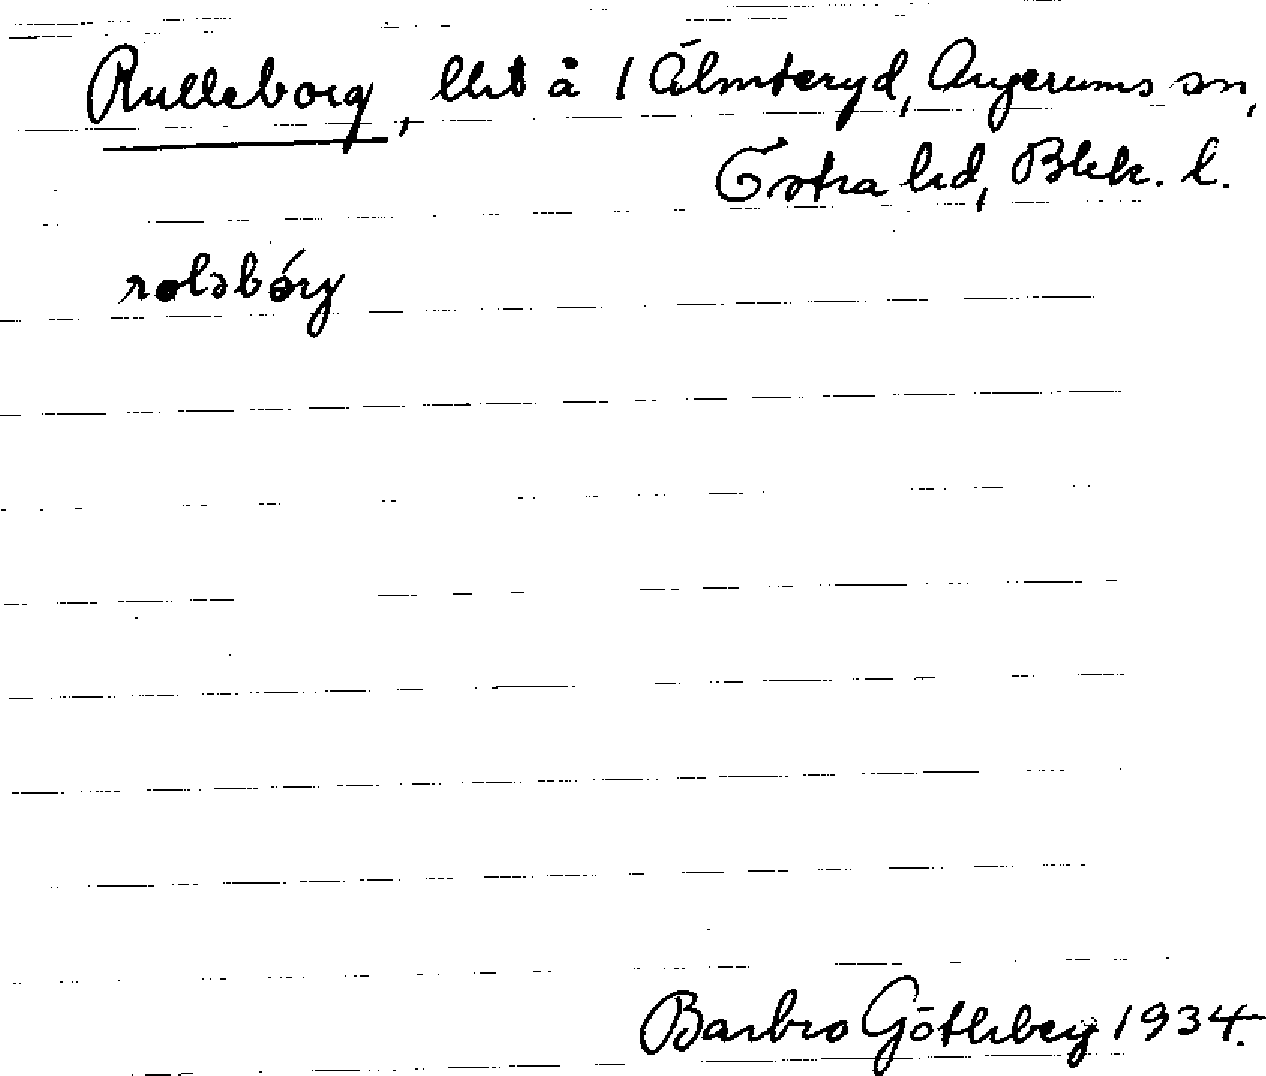 Rulleborg, lht å 1 Älmteryd, Augerums sn,
Östra hd, Blek. l.
roləbórg
Barbro Götherberg 1934.